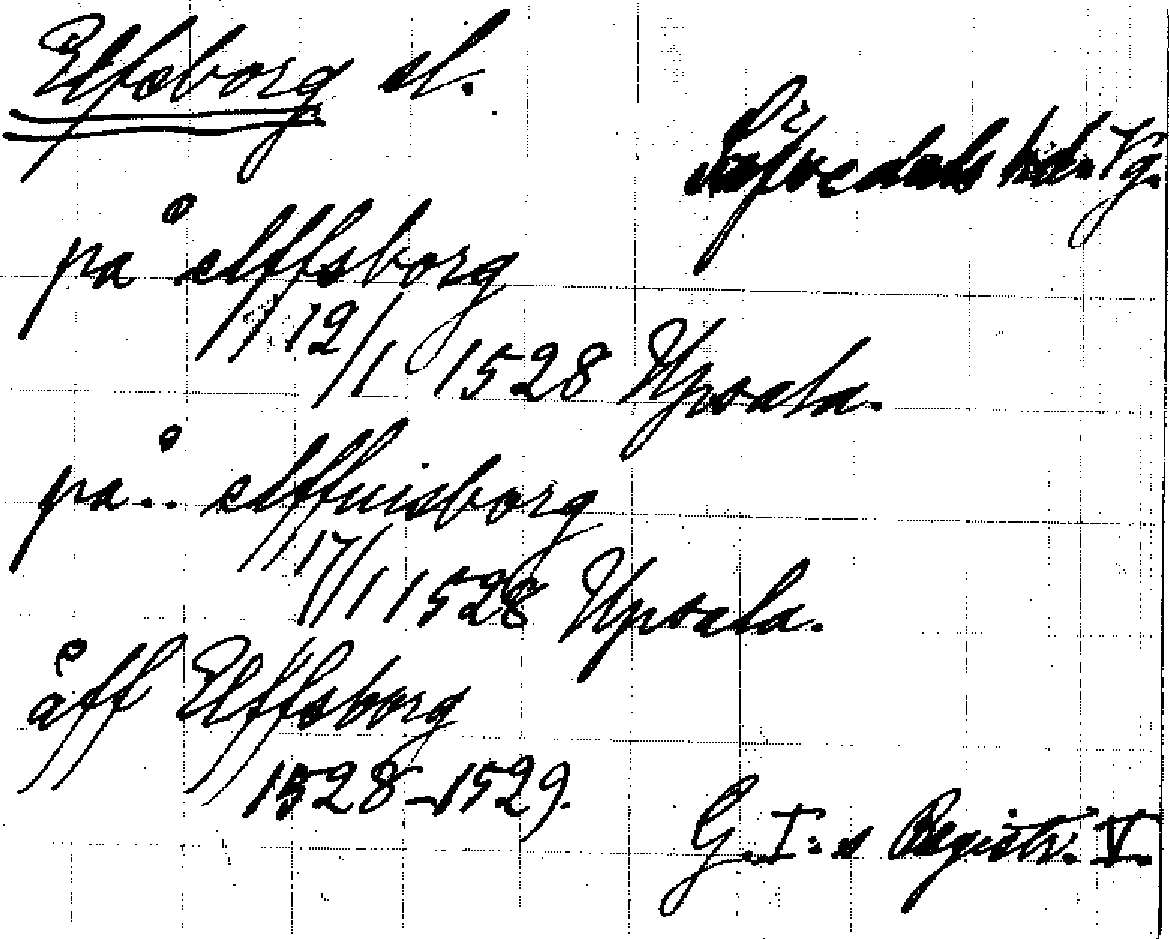 Elfsborg sl.
Säfvedals hd. Vg.
på elffsborg
12/1 1528 Upsala.
på.. elffuisborg
17/1 1528 Upsala.
åff Elffsborg
1528-1529.
G. I:s Registr. V.